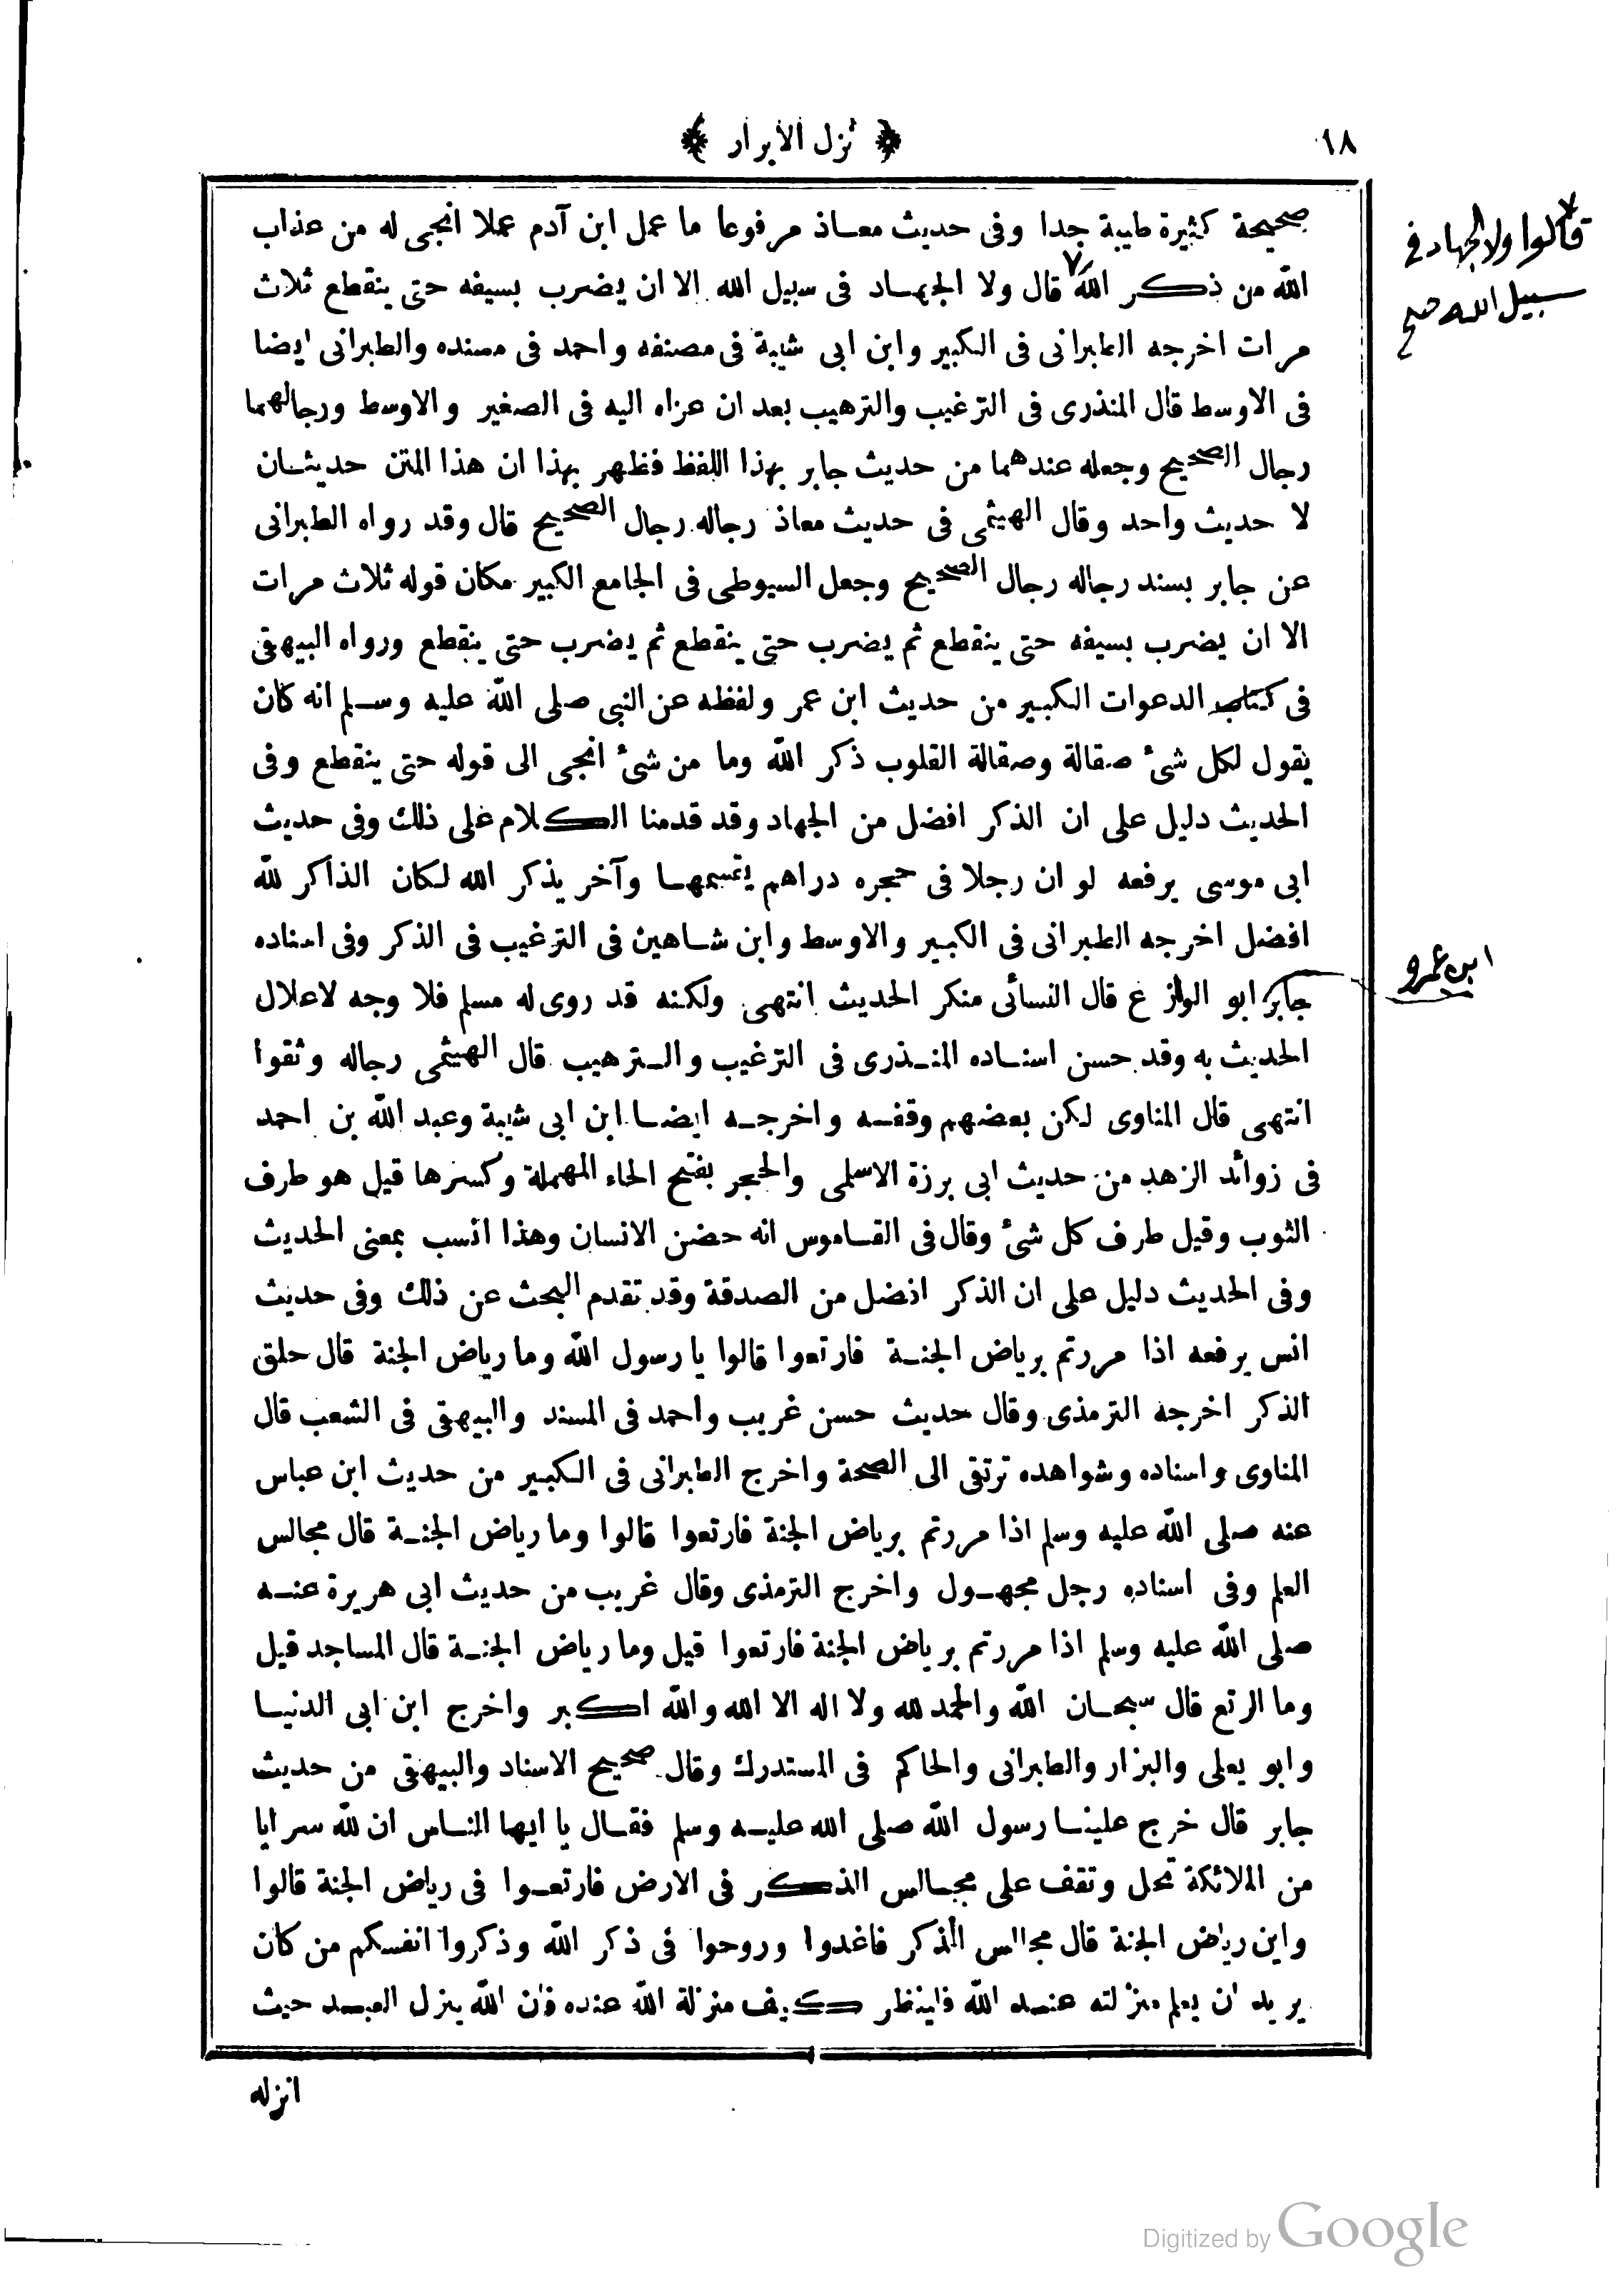 ١٨ ﴿ نزل الأبرار ﴾
صحيحة كثيرة طيبة جدا وفى حديث معاذ مرفوعا ما عمل ابن آدم عملا انجى له من عذاب
الله من ذكر الله قال ولا الجهاد فى سبيل الله الا ان يضرب بسيفه حتى ينقطع ثلاث
مرات اخرجه الطبرانى فى الكبير وابن ابى شيبة فى مصنفه واحمد فى مسنده والطبرانى ايضا
فى الاوسط قال المنذرى فى الترغيب والترهيب بعد ان عزاه اليه فى الصغير والاوسط ورجالهما
رجال الصحيح وجعله عندهما من حديث جابر بهذا اللفظ فظهر بهذا ان هذا المتن حديثان
لا حديث واحد وقال الهيثمى فى حديث معاذ رجاله رجال الصحيح قال وقد رواه الطبرانى
عن جابر بسند رجاله رجال الصحيح وجعل السيوطى فى الجامع الكبير مكان قوله ثلاث مرات
الا ان يضرب بسيفه حتى ينقطع ثم يضرب حتى ينقطع ثم يضرب حتى ينقطع ورواه البيهقى
فى كتاب الدعوات الكبير من حديث ابن عمر ولفظه عن النبى صلى الله عليه وسلم انه كان
يقول لكل شئ صقالة وصقالة القلوب ذكر الله وما من شئ انجى الى قوله حتى ينقطع وفى
الحديث دليل على ان الذكر افضل من الجهاد وقد قدمنا الكلام على ذلك وفى حديث
ابى موسى يرفعه لو ان رجلا فى حجره دراهم يقسمها وآخر يذكر الله لكان الذاكر لله
افضل اخرجه الطبرانى فى الكبير والاوسط وابن شاهين فى الترغيب فى الذكر وفى اسناده
جابر ابو الوازع قال النسائى منكر الحديث انتهى ولكنه قد روى له مسلم فلا وجه لاعلال
الحديث به وقد حسن اسناده المنذرى فى الترغيب والترهيب قال الهيثمى رجاله وثقوا
انتهى قال المناوى لكن بعضهم وقفه واخرجه ايضا ابن ابى شيبة وعبد الله بن احمد
فى زوائد الزهد من حديث ابى برزة الاسلمى والحجر بفتح الحاء المهملة وكسرها قيل هو طرف
الثوب وقيل طرف كل شئ وقال فى القاموس انه حضن الانسان وهذا انسب بمعنى الحديث
وفى الحديث دليل على ان الذكر افضل من الصدقة وقد تقدم البحث عن ذلك وفى حديث
انس يرفعه اذا مررتم برياض الجنة فارتعوا قالوا يا رسول الله وما رياض الجنة قال حلق
الذكر اخرجه الترمذى وقال حديث حسن غريب واحمد فى المسند والبيهقى فى الشعب قال
المناوى واسناده وشواهده ترتقى الى الصحة واخرج الطبرانى فى الكبير من حديث ابن عباس
عنه صلى الله عليه وسلم اذا مررتم برياض الجنة فارتعوا قالوا وما رياض الجنة قال مجالس
العلم وفى اسناده رجل مجهول واخرج الترمذى وقال غريب من حديث ابى هريرة عنه
صلى الله عليه وسلم اذا مررتم برياض الجنة فارتعوا قيل وما رياض الجنة قال المساجد قيل
وما الرتع قال سبحان الله والحمد لله ولا اله الا الله والله اكبر واخرج ابن ابى الدنيا
وابو يعلى والبزار والطبرانى والحاكم فى المستدرك وقال صحيح الاسناد والبيهقى من حديث
جابر قال خرج علينا رسول الله صلى الله عليه وسلم فقال يا ايها الناس ان لله سرايا
من الملائكة تحل وتقف على مجالس الذكر فى الارض فارتعوا فى رياض الجنة قالوا
واين رياض الجنة قال مجالس الذكر فاغدوا وروحوا فى ذكر الله وذكروا انفسكم من كان
يريد ان يعلم منزلته عند الله فلينظر كيف منزلة الله عنده فان الله ينزل العبد حيث
انزله
قالوا ولا الجهاد فى
سبيل الله صح
ابن عمرو
Digitized by Google